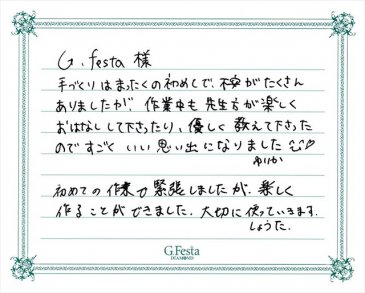 G.festa 様
手づくりはまったくの初めしで、不安がたくさん
ありましたが、作業中も先生方が楽しく
おはなしして下さったり、優しく教えて下さった
のですごくいい思い出になりました
ゆいか
初めての作業で緊張しましたが、楽しく
作ることができました。大切に使っていきます。
しょうた。
G.Festa
DIAMOND